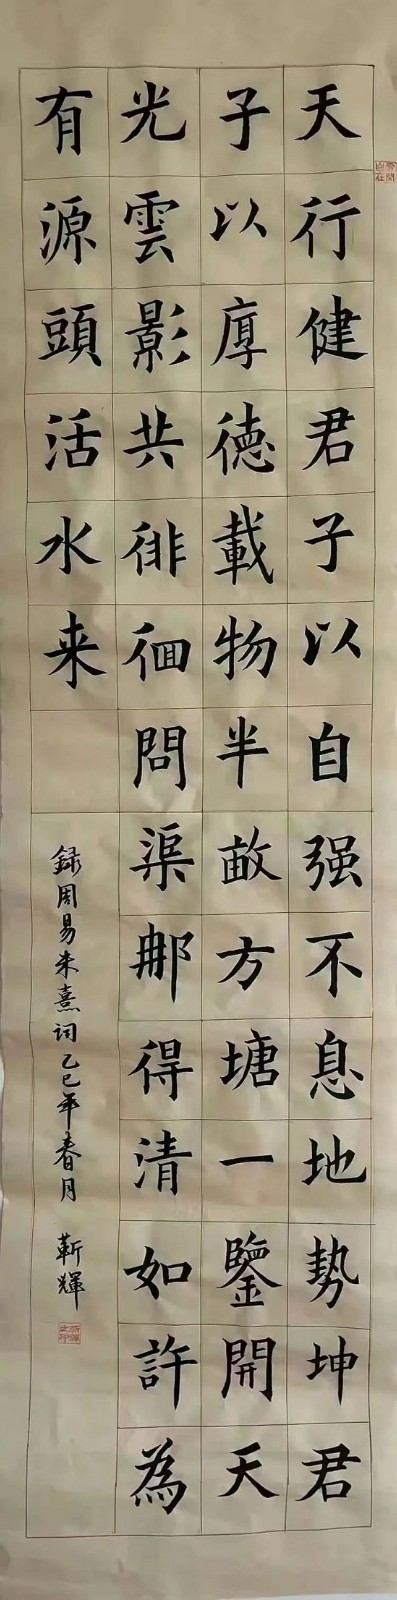 天行健君子以自强不息地勢坤君
子以厚德載物半畝方塘一鑒開天
光雲影共徘徊問渠那得清如許為
有源頭活水来
録周易朱熹词乙巳年春月 靳輝